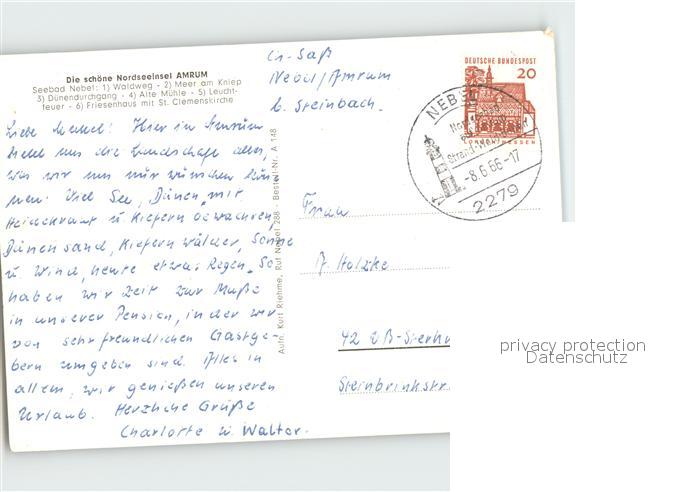 Die schöne Nordseeinsel AMRUM
Seebad Nebel: 1) Waldweg - 2) Meer am Kniep
3) Dünendurchgang - 4) Alte Mühle - 5) Leucht-
feuer - 6) Friesenhaus mit St. Clemenskirche
Hier in Amrum
die Landschaft alles,
was wir uns nur wünschen kön-
nen. Viel See, Dünen mit
Heidekraut u Kiefern bewachsen,
Dünensand, Kiefernwälder, Sonne
u Wind, heute etwas Regen. So
haben wir Zeit zur Muße
in unserer Pension, in der wir
von sehr freundlichen Gastge-
bern umgeben sind. Alles in
allem, wir genießen unseren
Urlaub. Herzliche Grüße
Charlotte u. Walter.
Aufn. Kurt Riehme, Ruf Nebel 288 - Bestell-Nr. A 148
Nebel/Amrum
b. Steinbach.
DEUTSCHE BUNDESPOST
20
LORSCH/HESSEN
NEBEL
-8.6.66-17
2279
Frau
Holzke
42 OB-Sterkr
Steinbrinkstr.
privacy protection
Datenschutz